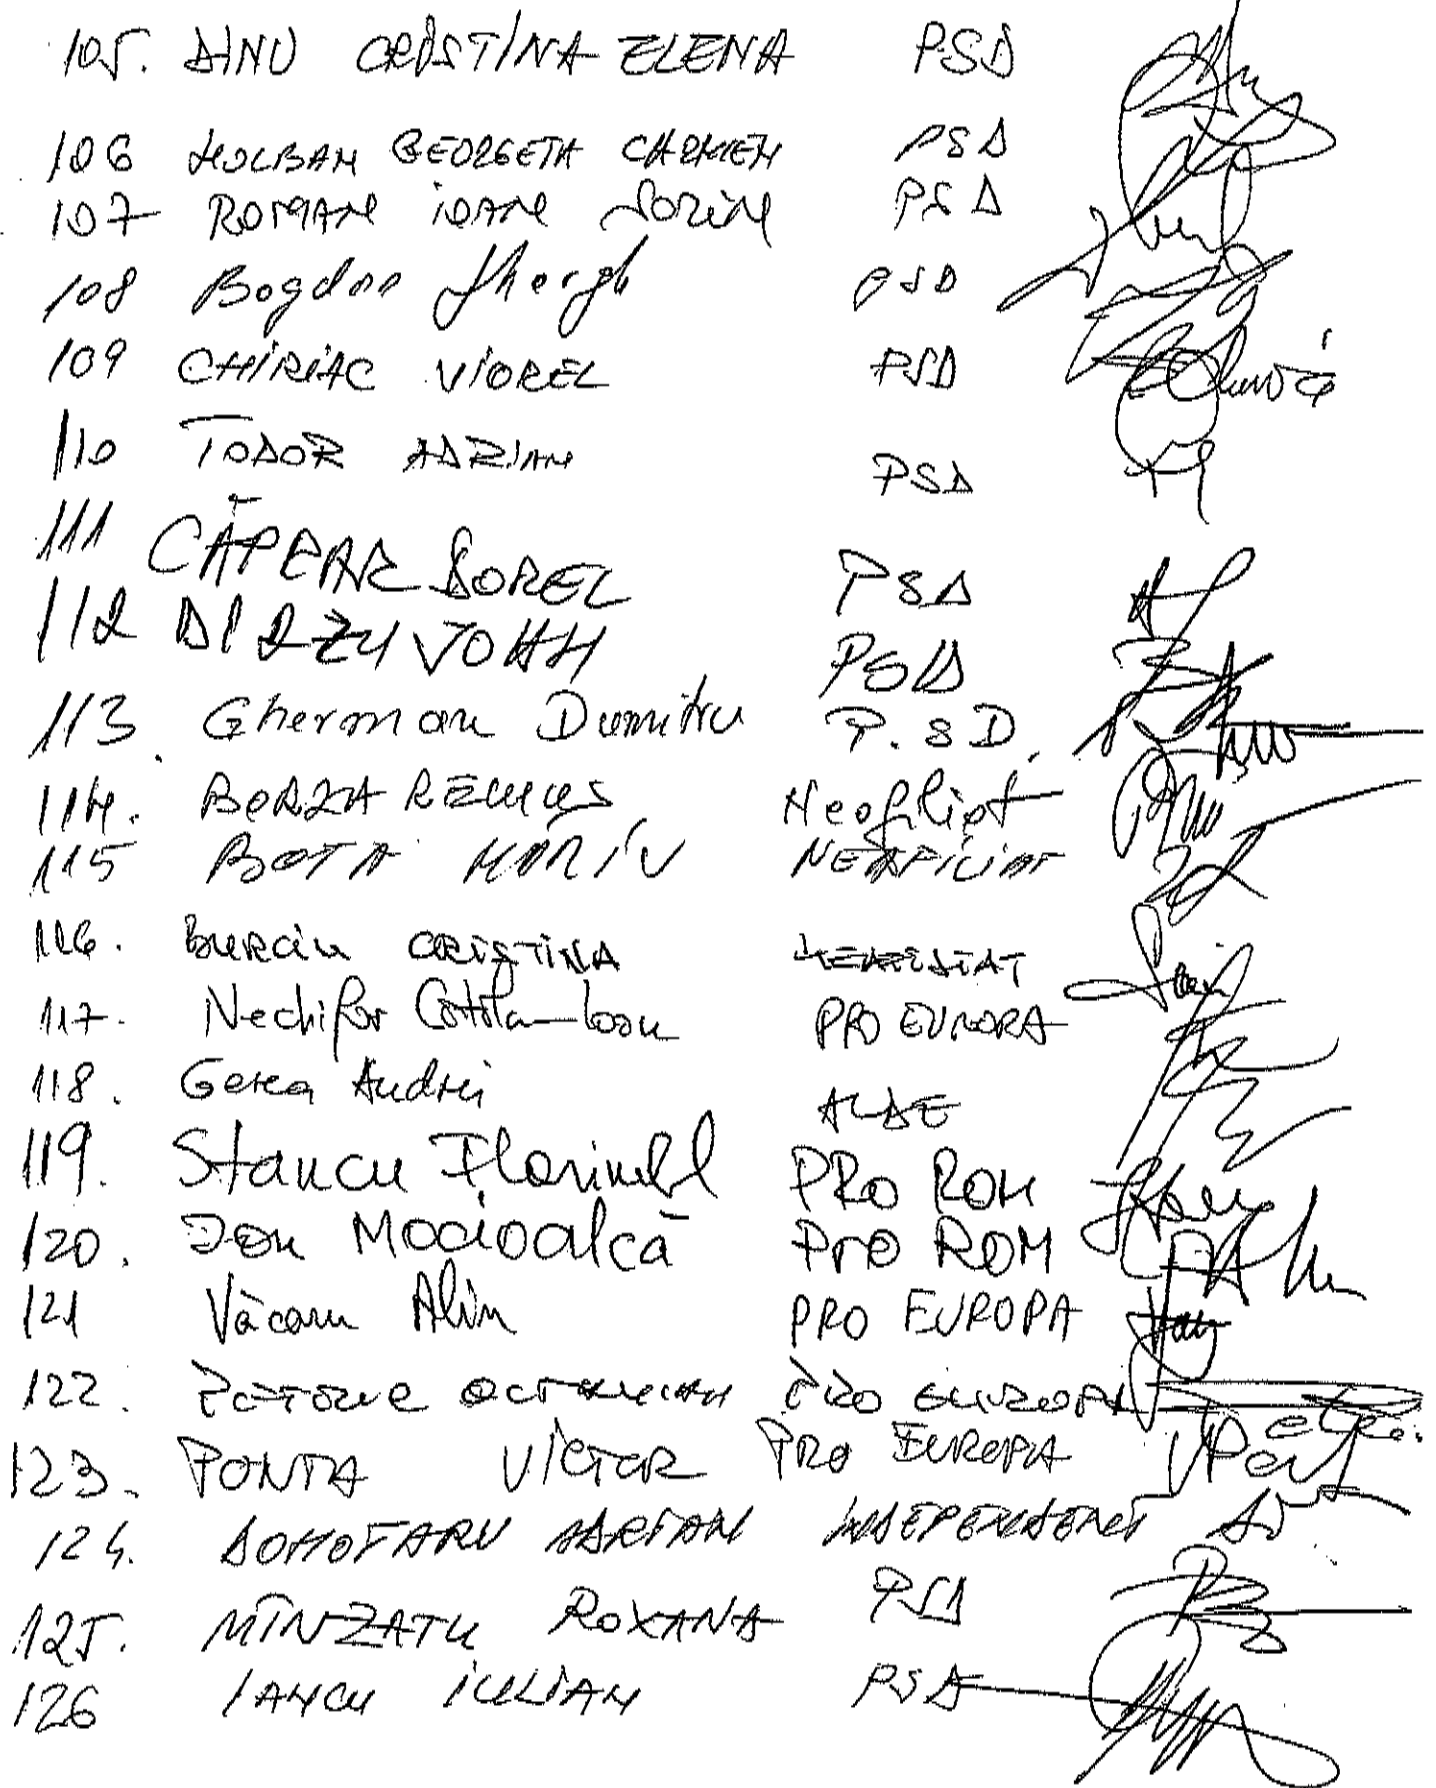 105. DINU CRISTINA ELENA PSD
106 HOLBAN GEORGETA CARMEN PSD
107 ROMAN IOAN Sorin PSD
108 Bogdan Gheorghe PSD
109 CHIRIAC VIOREL PSD
110 TODOR ADRIAN PSD
111 CĂPRAR DOREL PSD
112 DIRZU IOAN PSD
113. Gherman Dumitru P.S.D.
114. BORZA REMUS Neafiliat
115 BOTA NEAFILIAT
116. BURCIU CRISTINA NEAFILIAT
117. Nechifor PRO EUROPA
118. Gerea Andrei ALDE
119. Stancu Florinel PRO ROM
120. Ion Mocioalcă PRO ROM
121 Văcaru Alin PRO EUROPA
122. OCTAVIAN PRO EUROPA
123. PONTA VICTOR PRO EUROPA
124. ADRIAN INDEPENDENT
125. MÎNZATU ROXANA PSD
126 IANCU IULIAN PSD